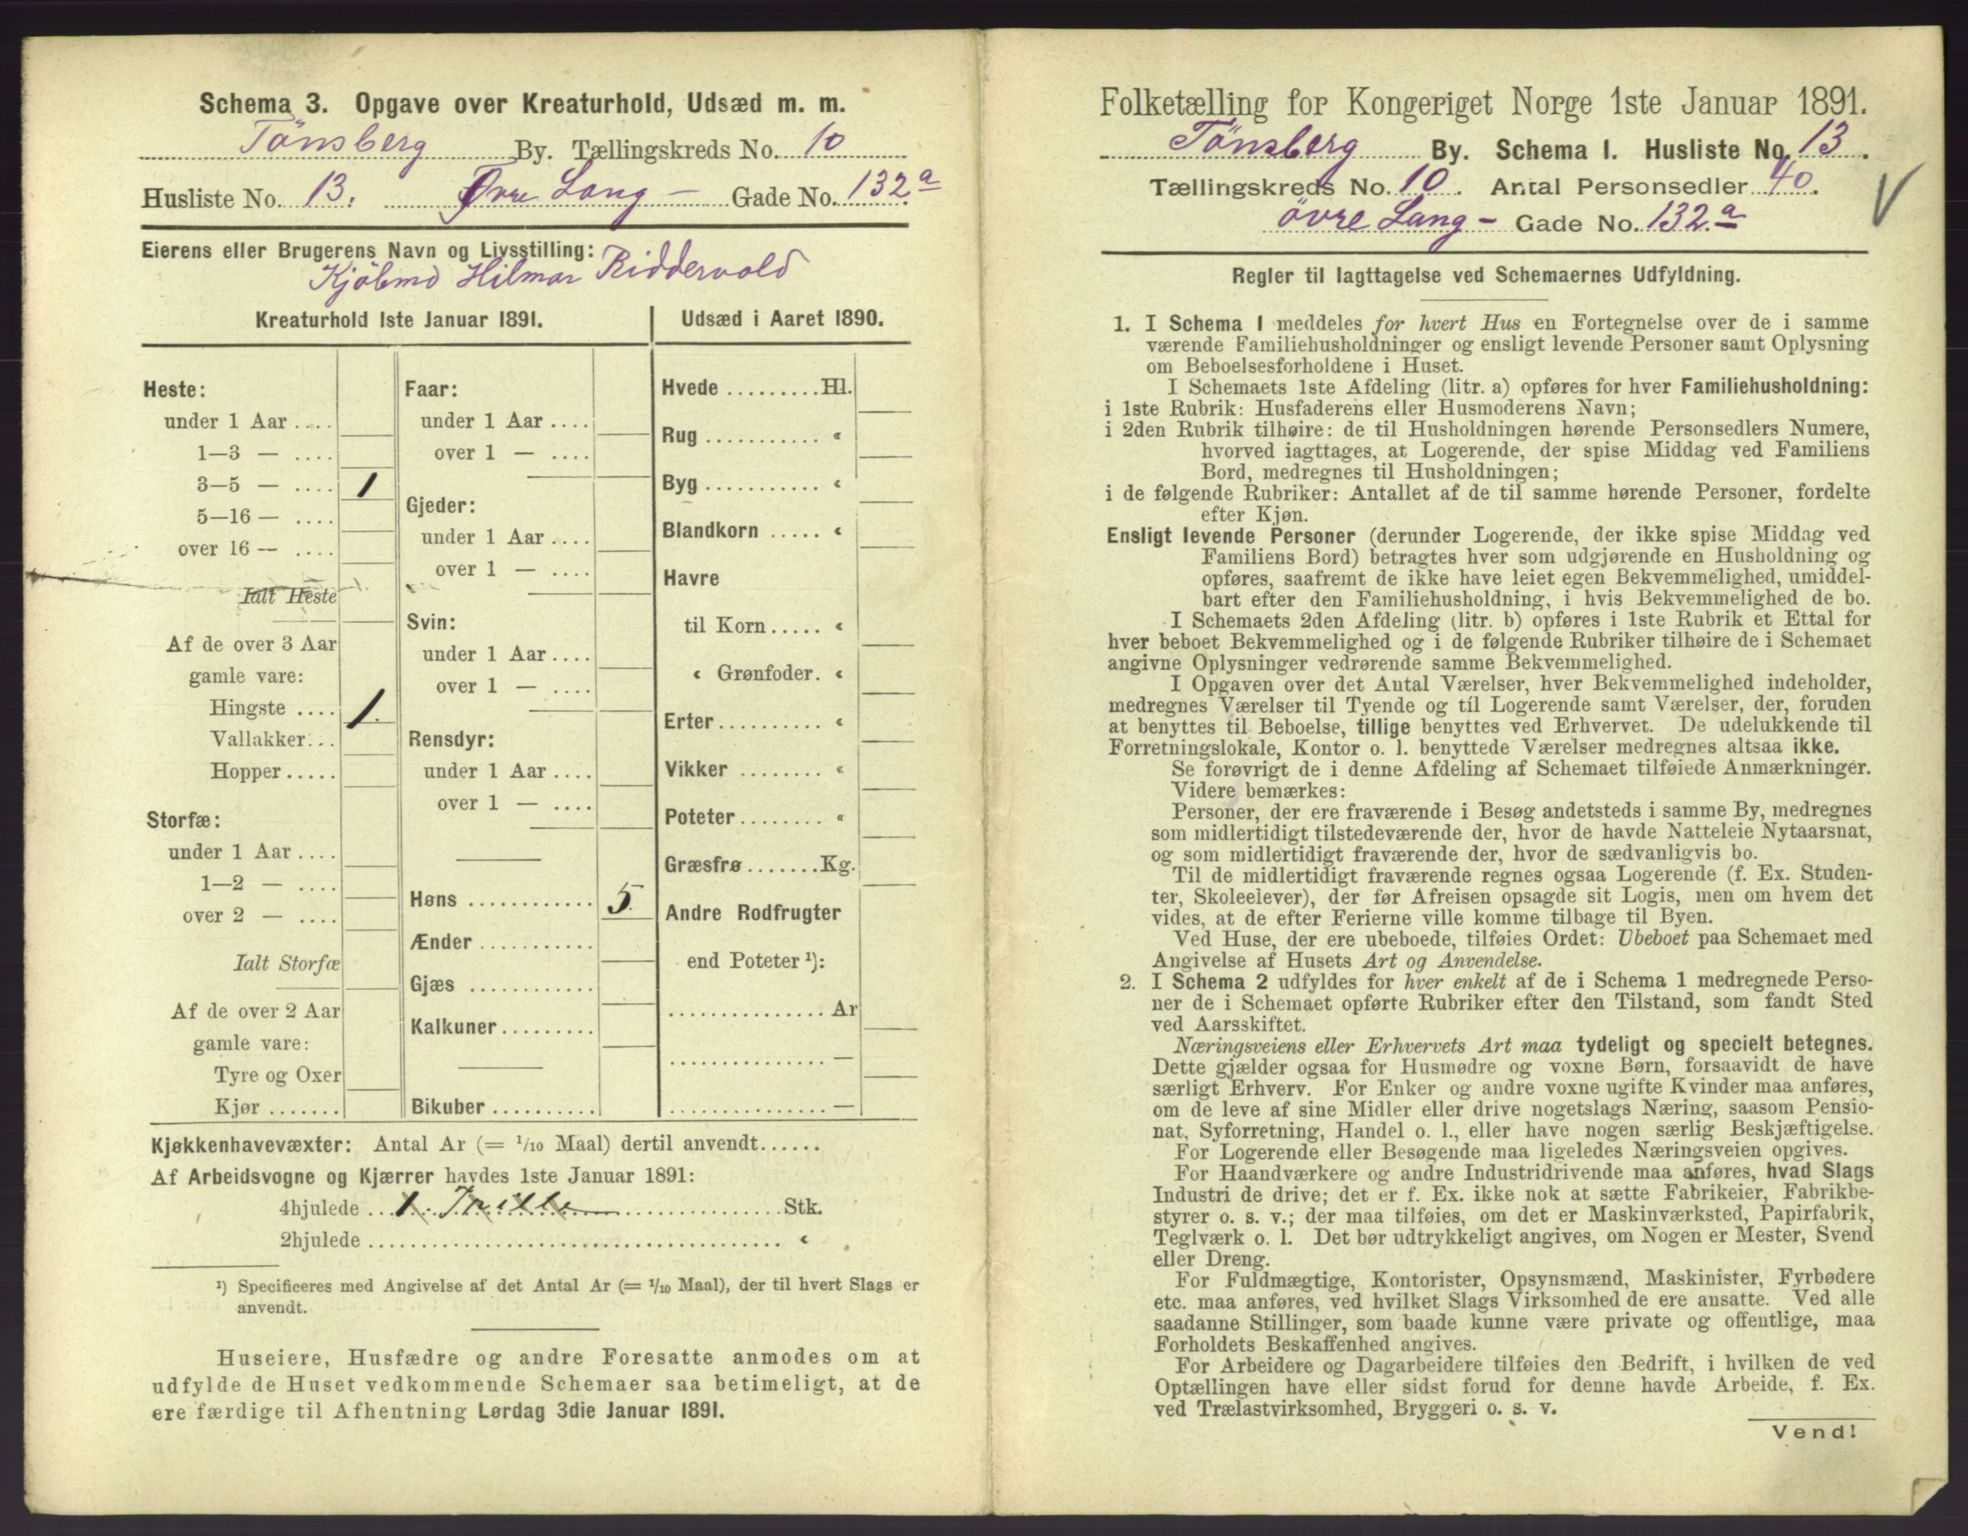 Schema 3. Opgave over Kreaturhold, Udsæd m. m.
Tönsberg By. Tællingskreds No. 10
Husliste No. 13. Øvre Lang - Gade No. 132.a
Eierens eller Brugerens Navn og Livsstilling:
Kjöbmd Hilmar Riddervold
Kreaturhold 1ste Januar 1891.
Heste:
under 1 Aar ....
1—3 — ....
3—5 — .... 1
5—16 — ....
over 16 — ....
Ialt Heste
Af de over 3 Aar
gamle vare:
Hingste .... 1.
Vallakker...
Hopper.....
Storfæ:
under 1 Aar ....
1—2 — ....
over 2 — ....
Ialt Storfæ
Af de over 2 Aar
gamle vare:
Tyre og Oxer
Kjør .......
Faar:
under 1 Aar ....
over 1 — ....
Gjeder:
under 1 Aar ....
over 1 — ....
Svin:
under 1 Aar ....
over 1 — ....
Rensdyr:
under 1 Aar ....
over 1 — ....
Høns ............ 5.
Ænder ...........
Gjæs ............
Kalkuner.........
Bikuber ..........
Udsæd i Aaret 1890.
Hvede .........Hl.
Rug ........... «
Byg ........... «
Blandkorn ..... «
Havre
til Korn..... «
« Grønfoder. «
Erter.......... «
Vikker ........ «
Poteter........ «
Græsfrø.......Kg.
Andre Rodfrugter
end Poteter ¹):
............... Ar
............... —
............... —
Kjøkkenhavevæxter: Antal Ar (= 1/10 Maal) dertil anvendt......
Af Arbeidsvogne og Kjærrer havdes 1ste Januar 1891:
4hjulede ... 1. Trille ............ Stk.
2hjulede ........................................ «
¹) Specificeres med Angivelse af det Antal Ar (= 1/10 Maal), der til hvert Slags er
anvendt.
Huseiere, Husfædre og andre Foresatte anmodes om at
udfylde de Huset vedkommende Schemaer saa betimeligt, at de
ere færdige til Afhentning Lørdag 3die Januar 1891.
Folketælling for Kongeriget Norge 1ste Januar 1891.
Tönsberg By. Schema I. Husliste No. 13.
Tællingskreds No. 10. Antal Personsedler 40.
övre Lang - Gade No. 132.a
Regler til Iagttagelse ved Schemaernes Udfyldning.
1. I Schema 1 meddeles for hvert Hus en Fortegnelse over de i samme
værende Familiehusholdninger og ensligt levende Personer samt Oplysning
om Beboelsesforholdene i Huset.
I Schemaets 1ste Afdeling (litr. a) opføres for hver Familiehusholdning:
i 1ste Rubrik: Husfaderens eller Husmoderens Navn;
i 2den Rubrik tilhøire: de til Husholdningen hørende Personsedlers Numere,
hvorved iagttages, at Logerende, der spise Middag ved Familiens
Bord, medregnes til Husholdningen;
i de følgende Rubriker: Antallet af de til samme hørende Personer, fordelte
efter Kjøn.
Ensligt levende Personer (derunder Logerende, der ikke spise Middag ved
Familiens Bord) betragtes hver som udgjørende en Husholdning og
opføres, saafremt de ikke have leiet egen Bekvemmelighed, umiddel-
bart efter den Familiehusholdning, i hvis Bekvemmelighed de bo.
I Schemaets 2den Afdeling (litr. b) opføres i 1ste Rubrik et Ettal for
hver beboet Bekvemmelighed og i de følgende Rubriker tilhøire de i Schemaet
angivne Oplysninger vedrørende samme Bekvemmelighed.
I Opgaven over det Antal Værelser, hver Bekvemmelighed indeholder,
medregnes Værelser til Tyende og til Logerende samt Værelser, der, foruden
at benyttes til Beboelse, tillige benyttes ved Erhvervet. De udelukkende til
Forretningslokale, Kontor o. l. benyttede Værelser medregnes altsaa ikke.
Se forøvrigt de i denne Afdeling af Schemaet tilføiede Anmærkninger.
Videre bemærkes:
Personer, der ere fraværende i Besøg andetsteds i samme By, medregnes
som midlertidigt tilstedeværende der, hvor de havde Natteleie Nytaarsnat,
og som midlertidigt fraværende der, hvor de sædvanligvis bo.
Til de midlertidigt fraværende regnes ogsaa Logerende (f. Ex. Studen-
ter, Skoleelever), der før Afreisen opsagde sit Logis, men om hvem det
vides, at de efter Ferierne ville komme tilbage til Byen.
Ved Huse, der ere ubeboede, tilføies Ordet: Ubeboet paa Schemaet med
Angivelse af Husets Art og Anvendelse.
2. I Schema 2 udfyldes for hver enkelt af de i Schema 1 medregnede Perso-
ner de i Schemaet opførte Rubriker efter den Tilstand, som fandt Sted
ved Aarsskiftet.
Næringsveiens eller Erhvervets Art maa tydeligt og specielt betegnes.
Dette gjælder ogsaa for Husmødre og voxne Børn, forsaavidt de have
særligt Erhverv. For Enker og andre voxne ugifte Kvinder maa anføres,
om de leve af sine Midler eller drive nogetslags Næring, saasom Pensio-
nat, Syforretning, Handel o. l., eller have nogen særlig Beskjæftigelse.
For Logerende eller Besøgende maa ligeledes Næringsveien opgives.
For Haandværkere og andre Industridrivende maa anføres, hvad Slags
Industri de drive; det er f. Ex. ikke nok at sætte Fabrikeier, Fabrikbe-
styrer o. s. v.; der maa tilføies, om det er Maskinværksted, Papirfabrik,
Teglværk o. l. Det bør udtrykkeligt angives, om Nogen er Mester, Svend
eller Dreng.
For Fuldmægtige, Kontorister, Opsynsmænd, Maskinister, Fyrbødere
etc. maa anføres, ved hvilket Slags Virksomhed de ere ansatte. Ved alle
saadanne Stillinger, som baade kunne være private og offentlige, maa
Forholdets Beskaffenhed angives.
For Arbeidere og Dagarbeidere tilføies den Bedrift, i hvilken de ved
Optællingen have eller sidst forud for denne havde Arbeide, f. Ex.
ved Trælastvirksomhed, Bryggeri o. s. v.
Vend!